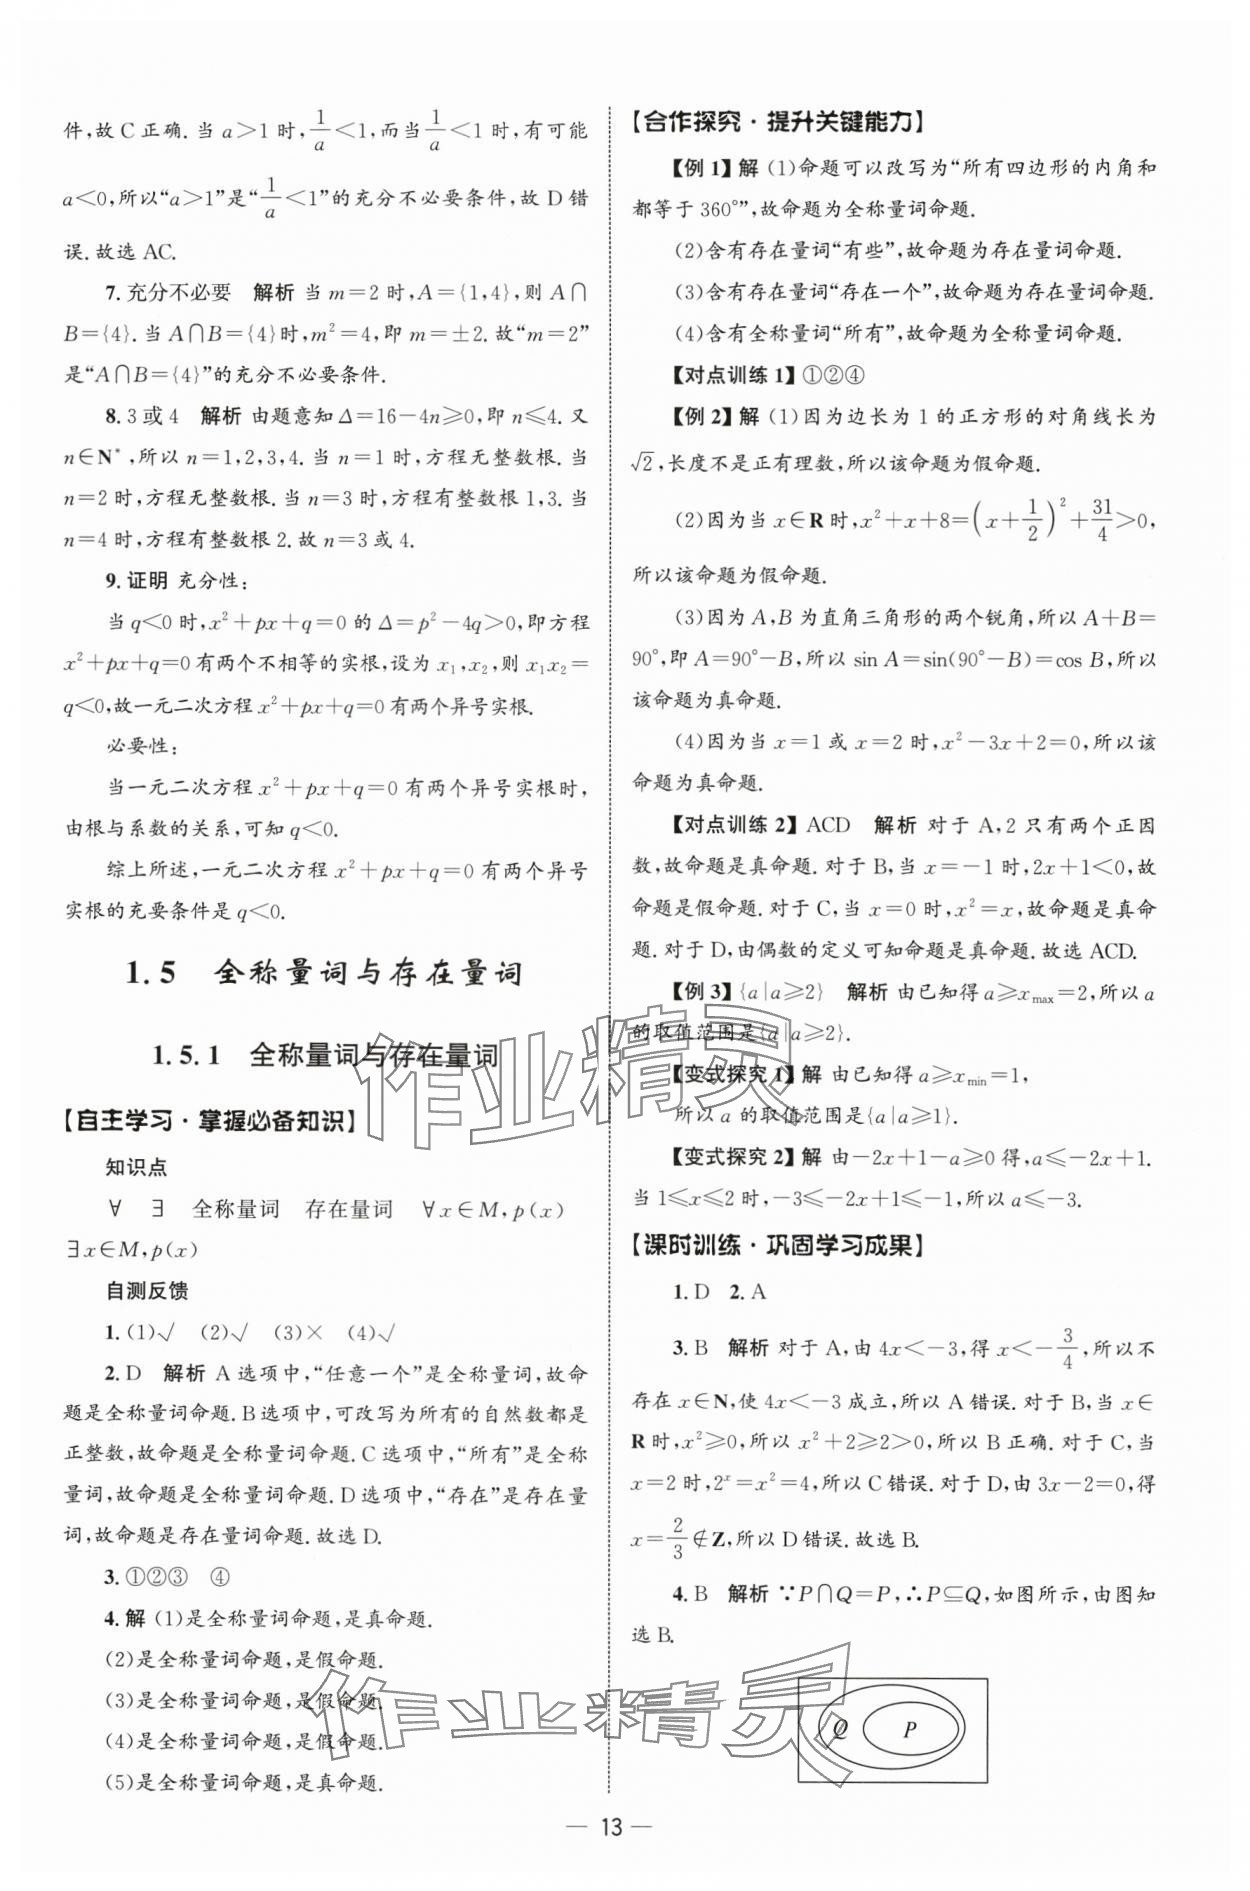 件,故 C 正确. 当 a>1 时,1/a<1,而当 1/a<1 时,有可能
a<0,所以“a>1”是“1/a<1”的充分不必要条件,故 D 错
误. 故选 AC.
7. 充分不必要 解析 当 m=2 时,A={1,4},则 A∩
B={4}. 当 A∩B={4}时,m²=4,即 m=±2. 故“m=2”
是“A∩B={4}”的充分不必要条件.
8. 3 或 4 解析 由题意知 Δ=16-4n≥0,即 n≤4. 又
n∈N*,所以 n=1,2,3,4. 当 n=1 时,方程无整数根. 当
n=2 时,方程无整数根. 当 n=3 时,方程有整数根 1,3. 当
n=4 时,方程有整数根 2. 故 n=3 或 4.
9. 证明 充分性:
当 q<0 时,x²+px+q=0 的 Δ=p²-4q>0,即方程
x²+px+q=0 有两个不相等的实根,设为 x₁,x₂,则 x₁x₂=
q<0,故一元二次方程 x²+px+q=0 有两个异号实根.
必要性:
当一元二次方程 x²+px+q=0 有两个异号实根时,
由根与系数的关系,可知 q<0.
综上所述,一元二次方程 x²+px+q=0 有两个异号
实根的充要条件是 q<0.
1.5 全称量词与存在量词
1.5.1 全称量词与存在量词
【自主学习·掌握必备知识】
知识点
∀ ∃ 全称量词 存在量词 ∀x∈M,p(x)
∃x∈M,p(x)
自测反馈
1. (1)√ (2)√ (3)× (4)√
2. D 解析 A 选项中,“任意一个”是全称量词,故命
题是全称量词命题. B 选项中,可改写为所有的自然数都是
正整数,故命题是全称量词命题. C 选项中,“所有”是全称
量词,故命题是全称量词命题. D 选项中,“存在”是存在量
词,故命题是存在量词命题. 故选 D.
3. ①②③ ④
4. 解 (1)是全称量词命题,是真命题.
(2)是全称量词命题,是假命题.
(3)是全称量词命题,是假命题.
(4)是全称量词命题,是假命题.
(5)是全称量词命题,是真命题.
【合作探究·提升关键能力】
【例 1】解 (1)命题可以改写为“所有四边形的内角和
都等于 360°”,故命题为全称量词命题.
(2)含有存在量词“有些”,故命题为存在量词命题.
(3)含有存在量词“存在一个”,故命题为存在量词命题.
(4)含有全称量词“所有”,故命题为全称量词命题.
【对点训练 1】①②④
【例 2】解 (1)因为边长为 1 的正方形的对角线长为
√2,长度不是正有理数,所以该命题为假命题.
(2)因为当 x∈R 时,x²+x+8=(x+1/2)²+31/4>0,
所以该命题为假命题.
(3)因为 A,B 为直角三角形的两个锐角,所以 A+B=
90°,即 A=90°-B,所以 sin A=sin(90°-B)=cos B,所以
该命题为真命题.
(4)因为当 x=1 或 x=2 时,x²-3x+2=0,所以该
命题为真命题.
【对点训练 2】ACD 解析 对于 A,2 只有两个正因
数,故命题是真命题. 对于 B,当 x=-1 时,2x+1<0,故
命题是假命题. 对于 C,当 x=0 时,x²=x,故命题是真命
题. 对于 D,由偶数的定义可知命题是真命题. 故选 ACD.
【例 3】{a|a≥2} 解析 由已知得 a≥xmax=2,所以 a
的取值范围是{a|a≥2}.
【变式探究 1】解 由已知得 a≥xmin=1,
所以 a 的取值范围是{a|a≥1}.
【变式探究 2】解 由-2x+1-a≥0 得,a≤-2x+1.
当 1≤x≤2 时,-3≤-2x+1≤-1,所以 a≤-3.
【课时训练·巩固学习成果】
1. D 2. A
3. B 解析 对于 A,由 4x<-3,得 x<-3/4,所以不
存在 x∈N,使 4x<-3 成立,所以 A 错误. 对于 B,当 x∈
R 时,x²≥0,所以 x²+2≥2>0,所以 B 正确. 对于 C,当
x=2 时,2ˣ=x²=4,所以 C 错误. 对于 D,由 3x-2=0,得
x=2/3∉Z,所以 D 错误. 故选 B.
4. B 解析 ∵P∩Q=P,∴P⊆Q,如图所示,由图知
选 B.
Q P
— 13 —
作业精灵
作业精灵